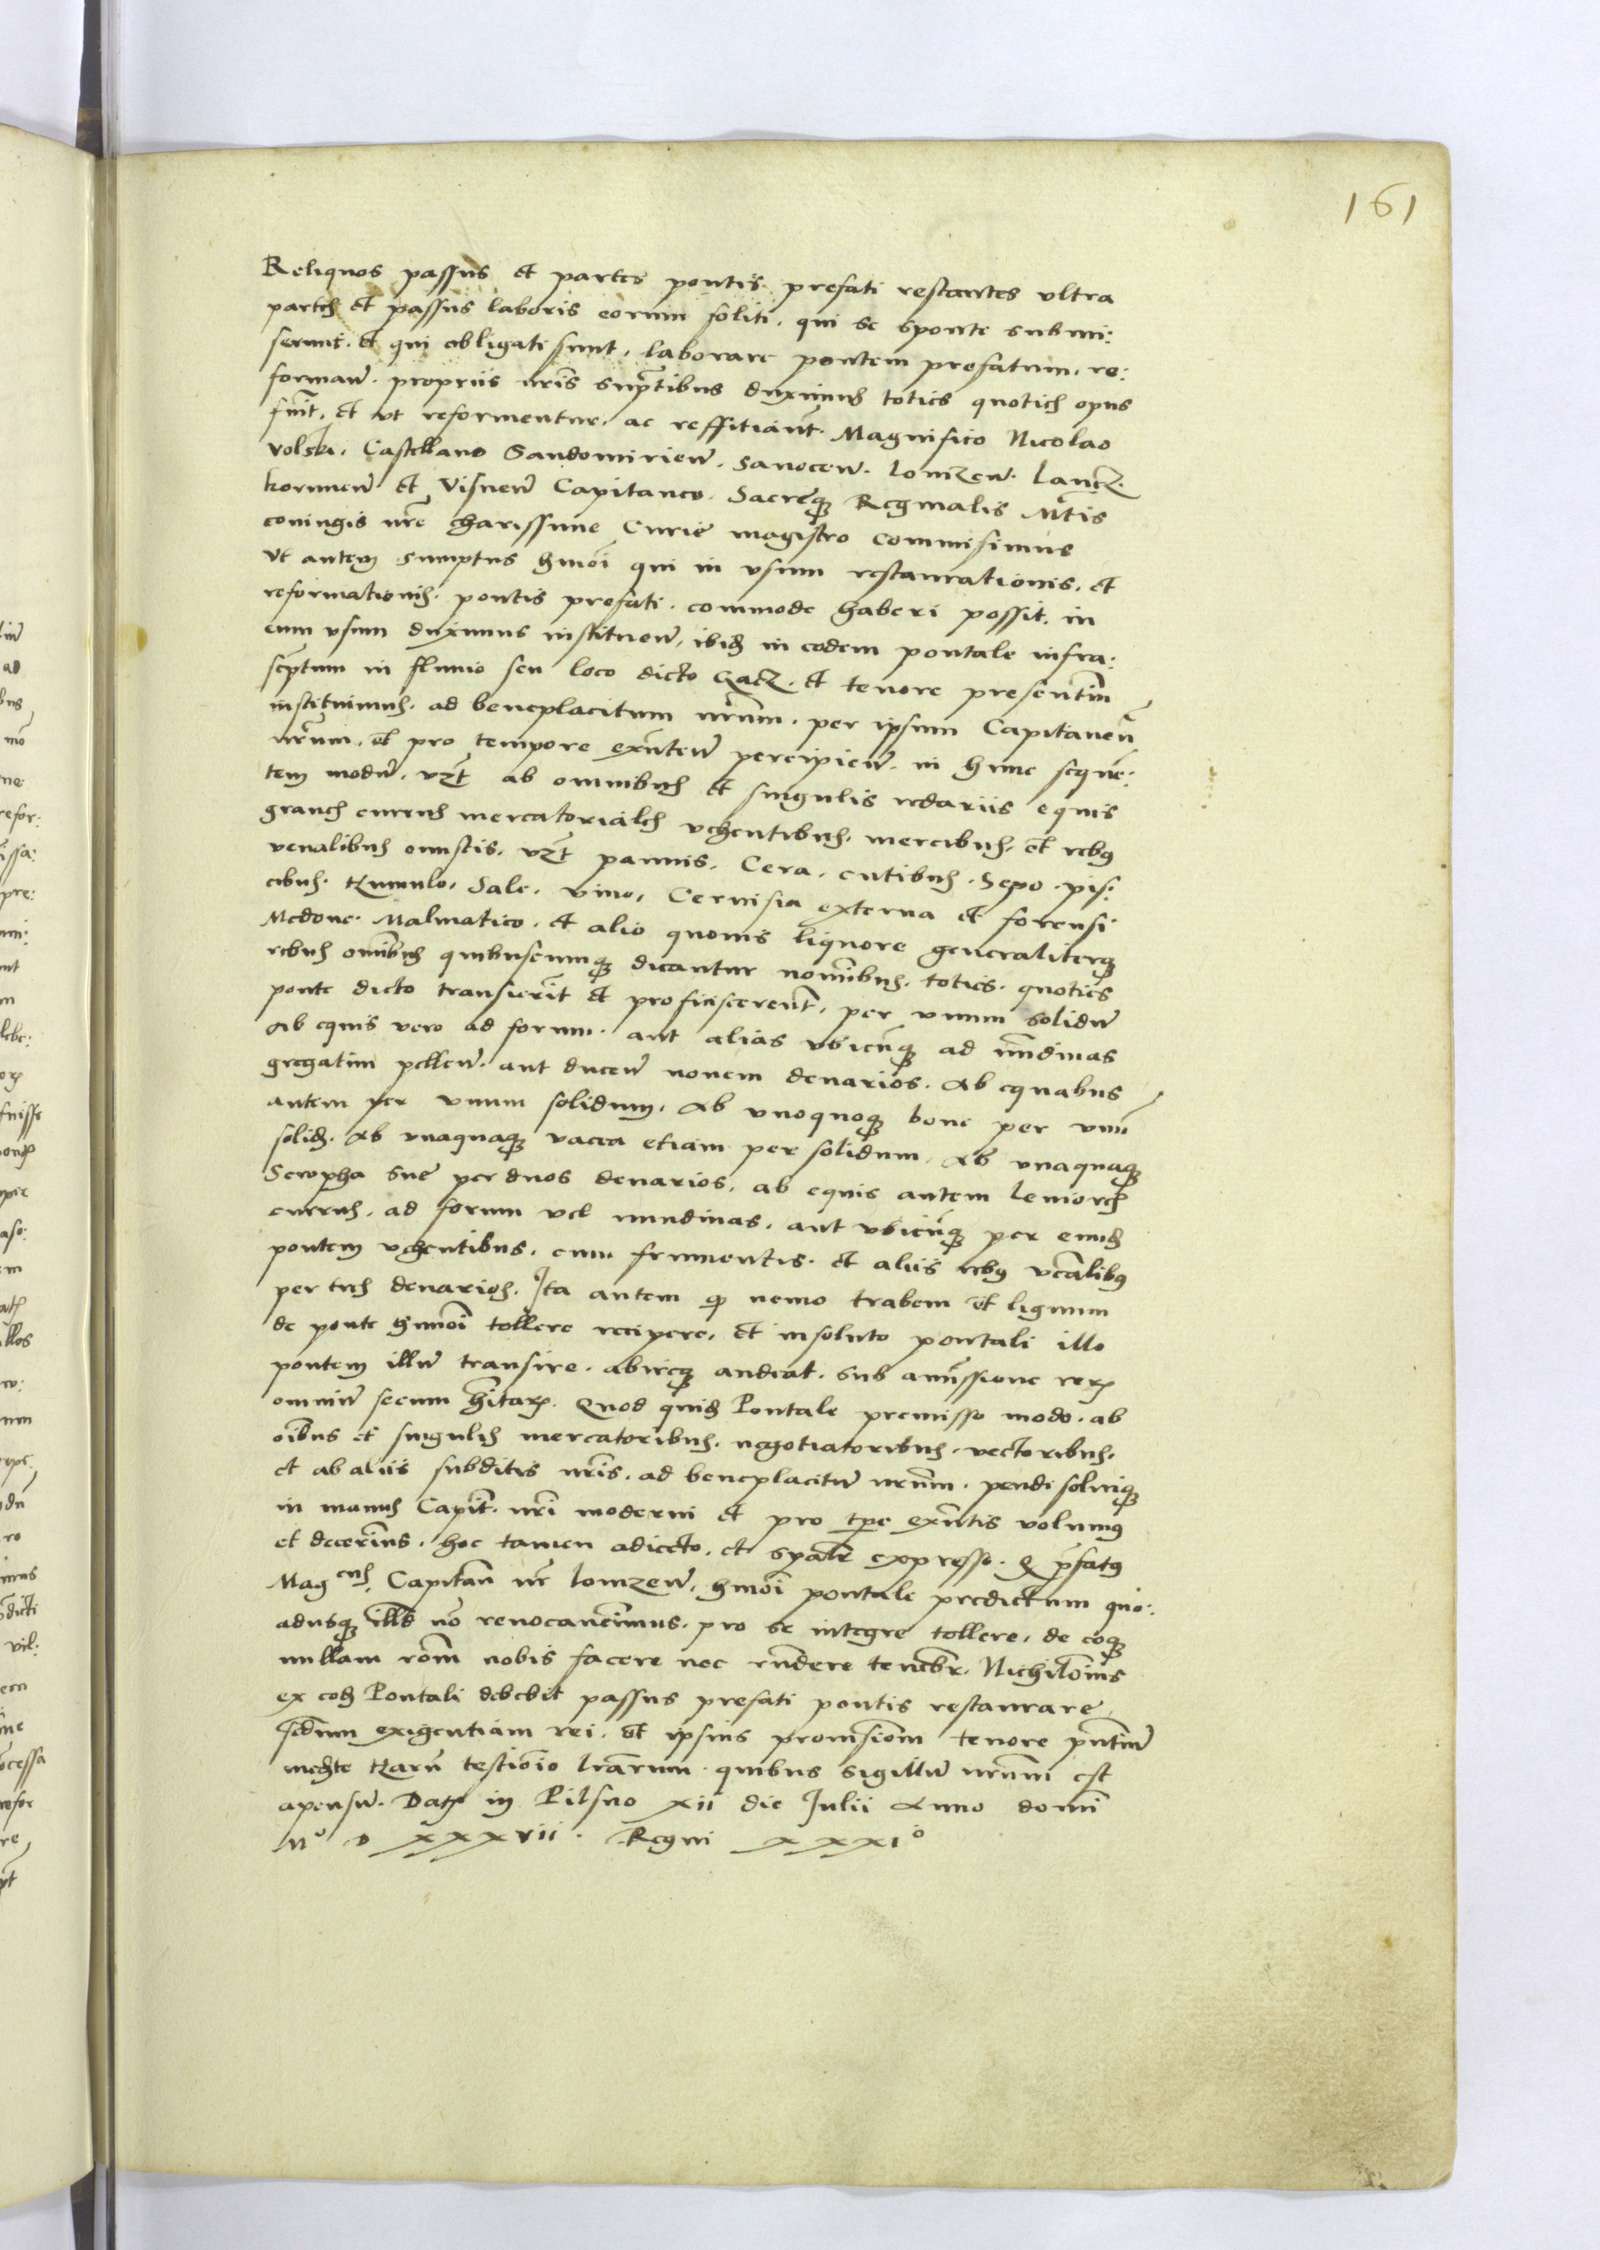 161
Reliquos passus et partes pontis prefati restantes ultra
partes et passus laboris eorum soliti, qui se sponte submi:
serunt, et qui obligati sunt, laborare pontem prefatum, re:
forman̄. propriis nr̄is sūptibus duximus toties quoties opus
fuit̄, et ut reformentur, ac reffitiant̄. Magnifico Nicolao
Volski, Castellano Sandomirien̄, Sanocen̄. Lomzen̄. Lancz.
kornnen̄ et Visnen̄ Capitaneo. Sacreq̄ Reginalis Mt̄is
coniugis nr̄e charissime Curie magistro commisimus
Ut autem sumptus hmōi qui in usum restaurationis, et
reformationis pontis prefati commode haberi possit, in
eum usum duximus instituen̄, ibid in eodem pontale infra:
scptum in fluvio seu loco dicto Gacz. et tenore presentiū
instituimus, ad beneplacitum nr̄um, per ipsum Capitaneū
nr̄um, et pro tempore exn̄tem̄ percipien̄, in hunc sequē:
tem modū, vz̄t ab omnibus et singulis redariis equis
graves currus mercatoriales vehentibus, mercibus, et rebus
venalibus onustis, vz̄t pannis, Cera, cutibus, Sepo, pis:
cibus, Humulo, Sale, vino, Cervisia externa et forensi
Medone, Malmatico, et alio quovis liquore generaliterq̄
rebus oīnibus quibuscumq̄ dicantur nomībus, toties quoties
ponte dicto transierīt et proficiscerent̄, per unum solidū
Ab equis vero ad forum, aut alias ubicūq̄ ad nūdinas
gregatim pellen̄. aut ducen̄ novem denarios. Ab equabus
autem per unum solidum, Ab unoquoq̄ bove per unū
solid. Ab unaquaq̄ vacca etiam per solidum, Ab unaquaq̄
Scropha sue per duos denarios, ab equis autem leviores
currus, ad forum vel nundinas, aut ubicūq̄ per eund
pontem vehentibus, cum frumentis et aliis rebus vēalibus
per tres denarios. Ita autem q nemo trabem et lignum
de ponte hmōi tollere recipere, et insoluto pontali illo
pontem illū transire, abireq̄ audeat, sub amissione rerū
omniū secum hītarū. Quod quid Pontale premisso modo, ab
oībus et singulis mercatoribus, negotiatoribus, vectoribus,
et ab aliis subditis nr̄is, ad beneplacitū nr̄um, pendi solviq̄
in manus Capit̄. nr̄i moderni et pro tpe exn̄tis volumus
et decernīus, hoc tamen adiecto, et spālr̄ expresso, Q pfatus
Mag cus, Capitan̄ nr̄ Lomzen̄, hmōi pontale predictum quo:
adusq̄ illd nō revocaverimus, pro se integre tollere, de eoq̄
nullam rōm nobis facere nec rn̄dere tenebr. Nichilomīs
ex eod Pontali debebit passus prefati pontis restaurare
scdum exigentiam rei, et ipsius provisiom̄ tenore pn̄tiū
medte harū testiōio lrārum quibus sigillū nr̄um est
apensū. Dat in Pilsno xii die Julii Anno domī
Mº D xxxvii. Regni xxxiº